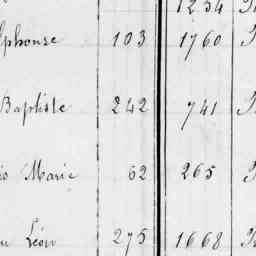 1254
lphonse 103 1760
Baptiste 242 741
Marie 62 265
Léon 275 1668